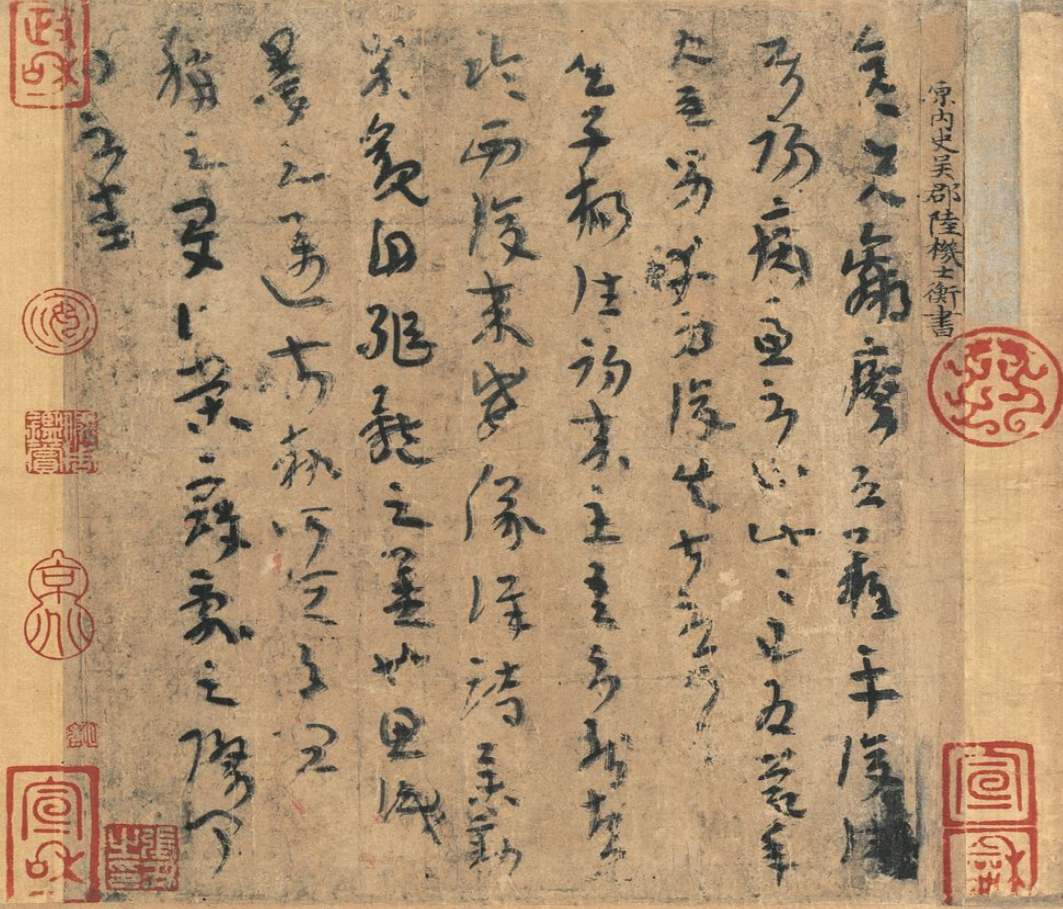 晉內史吳郡陸機士衡書
彦先羸瘵恐難平復往
屬初病慮不止此此已為慶承
使唯男幸為復失前憂耳
吳子楊往初來主吾不能盡
臨西復來威儀詳跱舉動
成觀自軀體之美也思識
量之邁前執所恆有宜
稱之夏伯榮寇亂之際聞
問不悉
宣和
政和
宣和
張丑之印